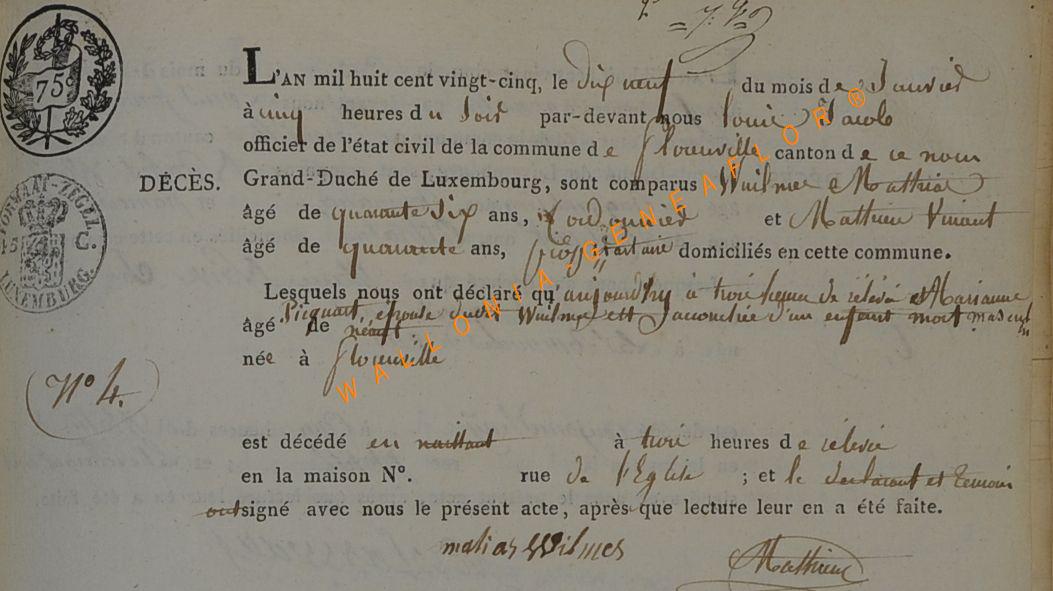 75c
L'AN mil huit cent vingt-cinq, le dix neuf du mois de Janvier
à cinq heures du Soir par-devant nous Louis Jacob
officier de l'état civil de la commune de Florenville canton de ce nom
DÉCÈS. Grand-Duché de Luxembourg, sont comparus Wuilmes Mathias
âgé de quarante dix ans, Cordonnier et Mathieu Viniant
âgé de quarante ans, domiciliés en cette commune.
Lesquels nous ont déclaré qu'aujourdhuy à trois heures de relevée Marianne
épouse dudit Wuilmes est Jaccouchée d'un enfant mort masculin
âgé de
née à Florenville
N° 4.
est décédé en naissant à trois heures de relevée
en la maison N°. rue de l'Eglise ; et le declarant et temoin
ontsigné avec nous le présent acte, après que lecture leur en a été faite.
matias Wilmes Mathieu
FORMAAT-ZEGEL
45 C.
LUXEMBURG.
WALLONIA-GENEAFLOR®